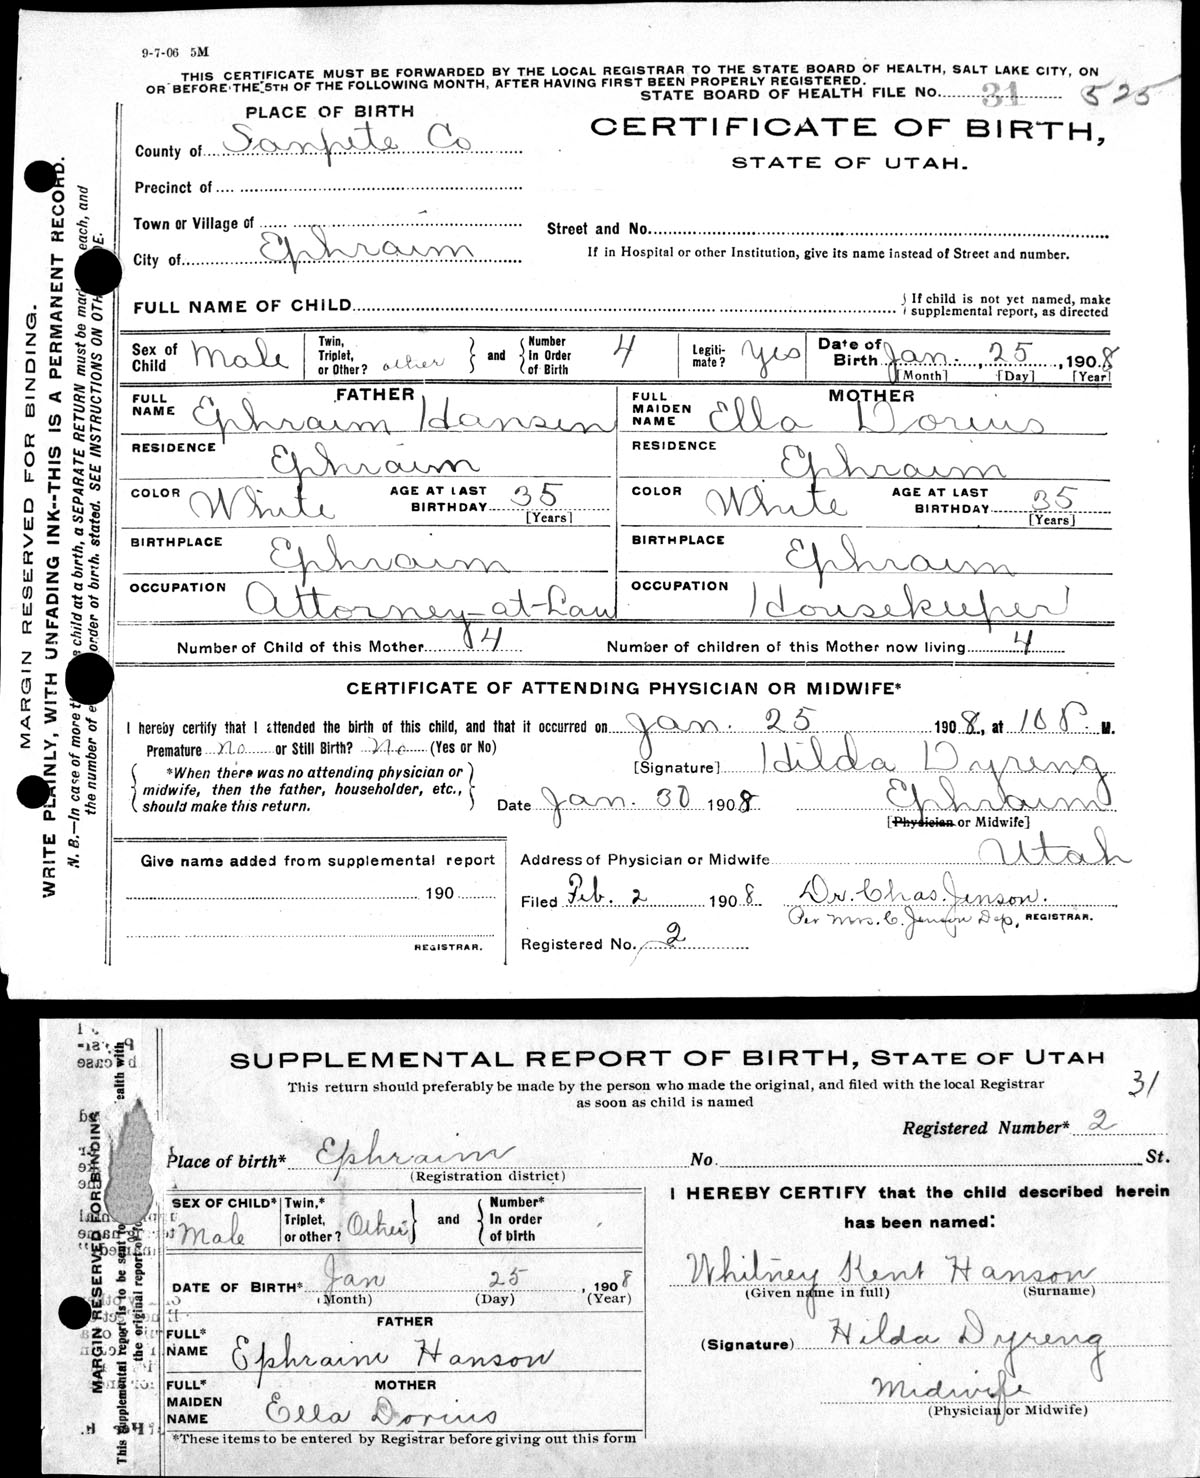 9-7-06 5M
THIS CERTIFICATE MUST BE FORWARDED BY THE LOCAL REGISTRAR TO THE STATE BOARD OF HEALTH, SALT LAKE CITY, ON
OR BEFORE THE 5TH OF THE FOLLOWING MONTH, AFTER HAVING FIRST BEEN PROPERLY REGISTERED.
STATE BOARD OF HEALTH FILE No. 31 525
PLACE OF BIRTH
CERTIFICATE OF BIRTH,
STATE OF UTAH.
County of Sanpete Co
Precinct of
Town or Village of
Street and No.
City of Ephraim
If in Hospital or other Institution, give its name instead of Street and number.
FULL NAME OF CHILD
If child is not yet named, make
supplemental report, as directed
Sex of Child Male
Twin, Triplet, or Other? other and Number In Order of Birth 4
Legiti-mate? Yes
Date of Birth Jan. 25, 1908
[Month] [Day] [Year]
FATHER
FULL NAME Ephraim Hansen
RESIDENCE Ephraim
COLOR White AGE AT LAST BIRTHDAY 35
[Years]
BIRTHPLACE Ephraim
OCCUPATION Attorney-at-Law
MOTHER
FULL MAIDEN NAME Ella Dorius
RESIDENCE Ephraim
COLOR White AGE AT LAST BIRTHDAY 35
[Years]
BIRTHPLACE Ephraim
OCCUPATION Housekeeper
Number of Child of this Mother 4 Number of children of this Mother now living 4
CERTIFICATE OF ATTENDING PHYSICIAN OR MIDWIFE*
I hereby certify that I attended the birth of this child, and that it occurred on Jan. 25 1908, at 10 P. M.
Premature No or Still Birth? No (Yes or No)
[Signature] Hilda Dyreng
*When there was no attending physician or
midwife, then the father, householder, etc.,
should make this return.
Date Jan. 30 1908 Ephraim
[Physician or Midwife]
Address of Physician or Midwife Utah
Give name added from supplemental report
190
REGISTRAR.
Filed Feb. 2 1908 Dr. Chas. Jenson.
Per Mrs. C. Jenson Dep, REGISTRAR.
Registered No. 2
MARGIN RESERVED FOR BINDING.
WRITE PLAINLY, WITH UNFADING INK--THIS IS A PERMANENT RECORD.
N. B.—In case of more t child at a birth, a SEPARATE RETURN must be mad each, and
the number of e order of birth, stated. SEE INSTRUCTIONS ON OTH DE.
SUPPLEMENTAL REPORT OF BIRTH, STATE OF UTAH
This return should preferably be made by the person who made the original, and filed with the local Registrar
as soon as child is named
31
Registered Number* 2
Place of birth* Ephraim No. St.
(Registration district)
SEX OF CHILD* Male
Twin,* Triplet, or other? Other and Number* In order of birth
DATE OF BIRTH* Jan 25, 1908
(Month) (Day) (Year)
FATHER
FULL* NAME Ephraim Hanson
MOTHER
FULL* MAIDEN NAME Ella Dorius
*These items to be entered by Registrar before giving out this form
I HEREBY CERTIFY that the child described herein
has been named:
Whitney Kent Hanson
(Given name in full) (Surname)
(Signature) Hilda Dyreng
Midwife
(Physician or Midwife)
MARGIN RESERVED FOR BINDING
This supplemental report is to be sent to
the original report of
ealth with